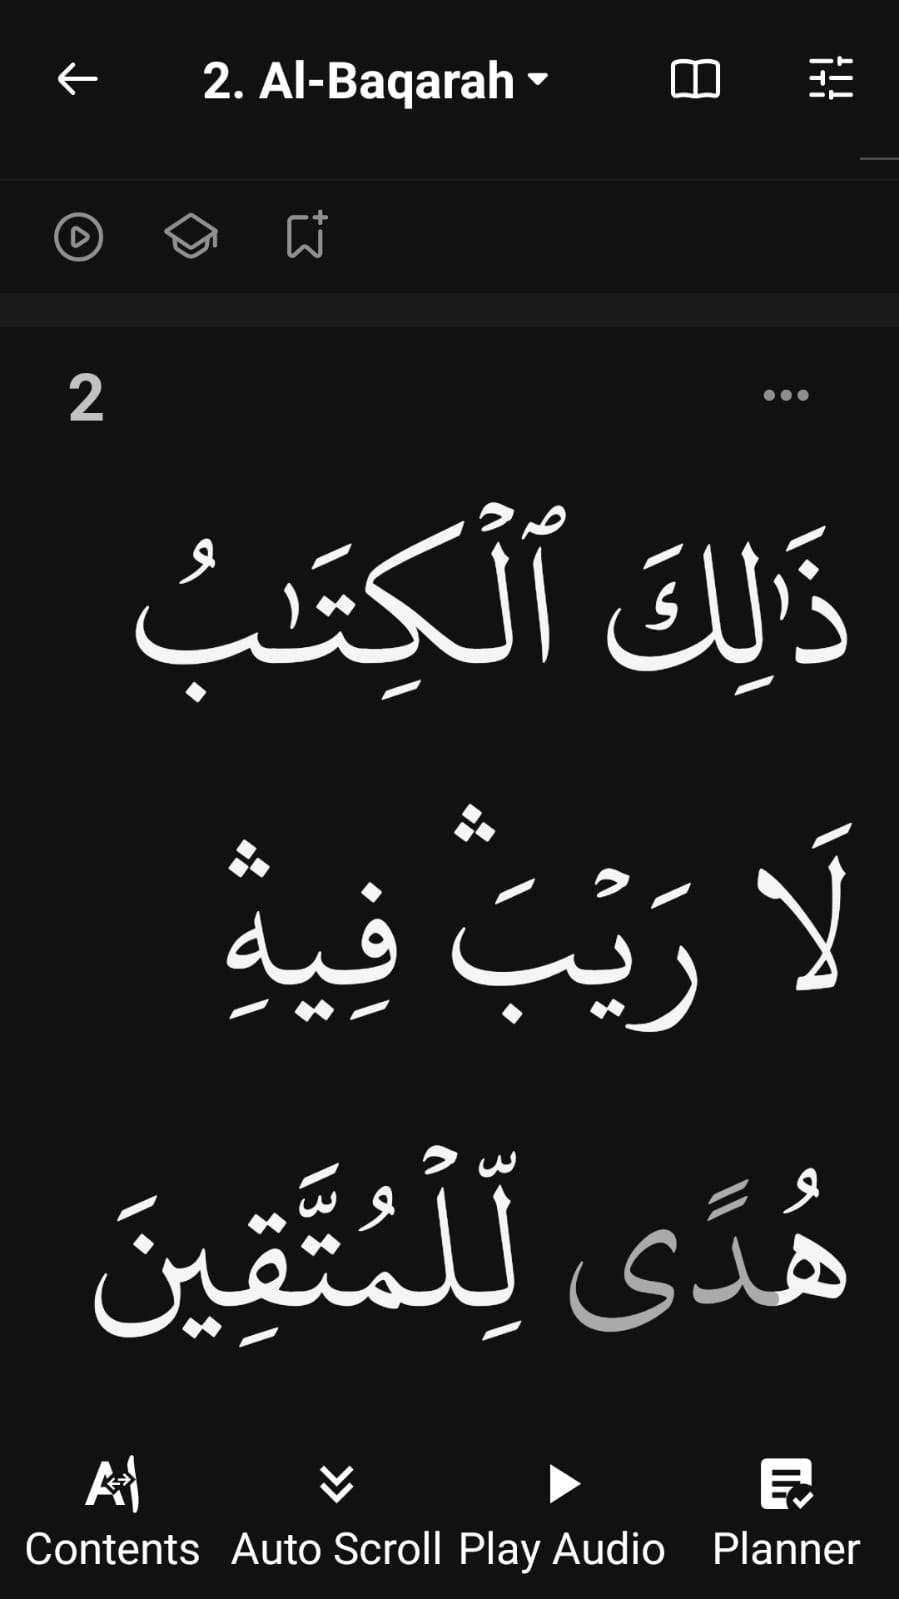 2. Al-Baqarah
2
ذَٰلِكَ ٱلۡكِتَٰبُ
لَا رَيۡبَۛ فِيهِۛ
هُدٗى لِّلۡمُتَّقِينَ
Contents Auto Scroll Play Audio Planner